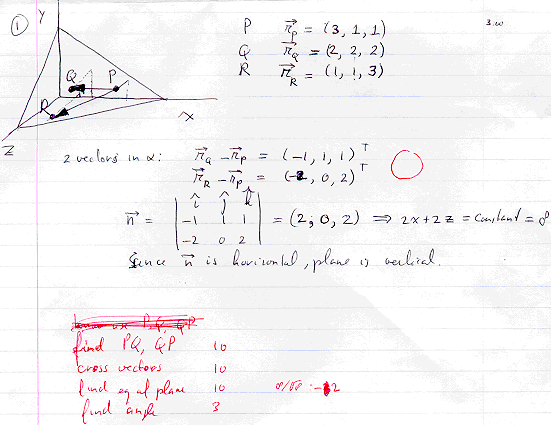 ①
Y
Q P
R
X
Z
3.00
P r⃗_P = (3, 1, 1)
Q r⃗_Q = (2, 2, 2)
R r⃗_R = (1, 1, 3)
2 vectors in α: r⃗_Q - r⃗_P = (-1, 1, 1)^T
r⃗_R - r⃗_P = (-2, 0, 2)^T
n⃗ = | î ĵ k̂ |
| -1 1 1 | = (2, 0, 2) ⟹ 2x + 2z = constant = 8
| -2 0 2 |
Since n⃗ is horisontal, plane is vertical.
PQ, QP
find PQ, QP 10
cross vectors 10
find eq of plane 10
find angle 3